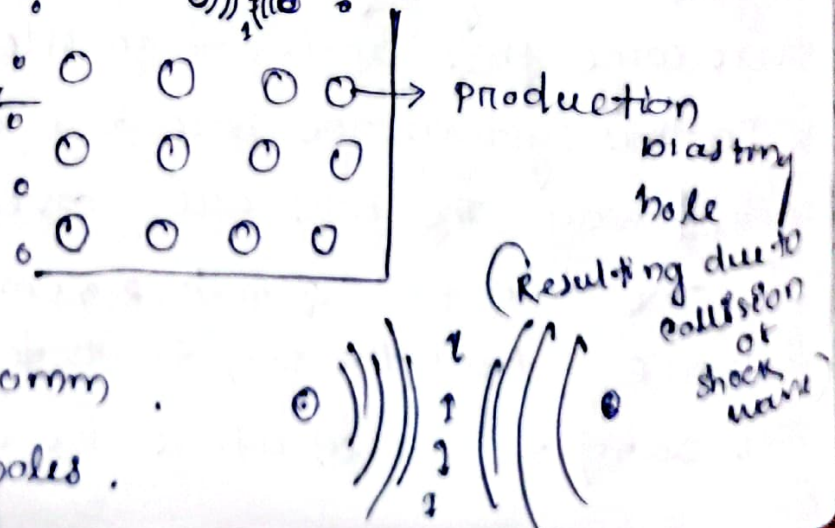 production
blasting
hole
(Resulting due to
collision
of
shock
wave
omm.
oles.